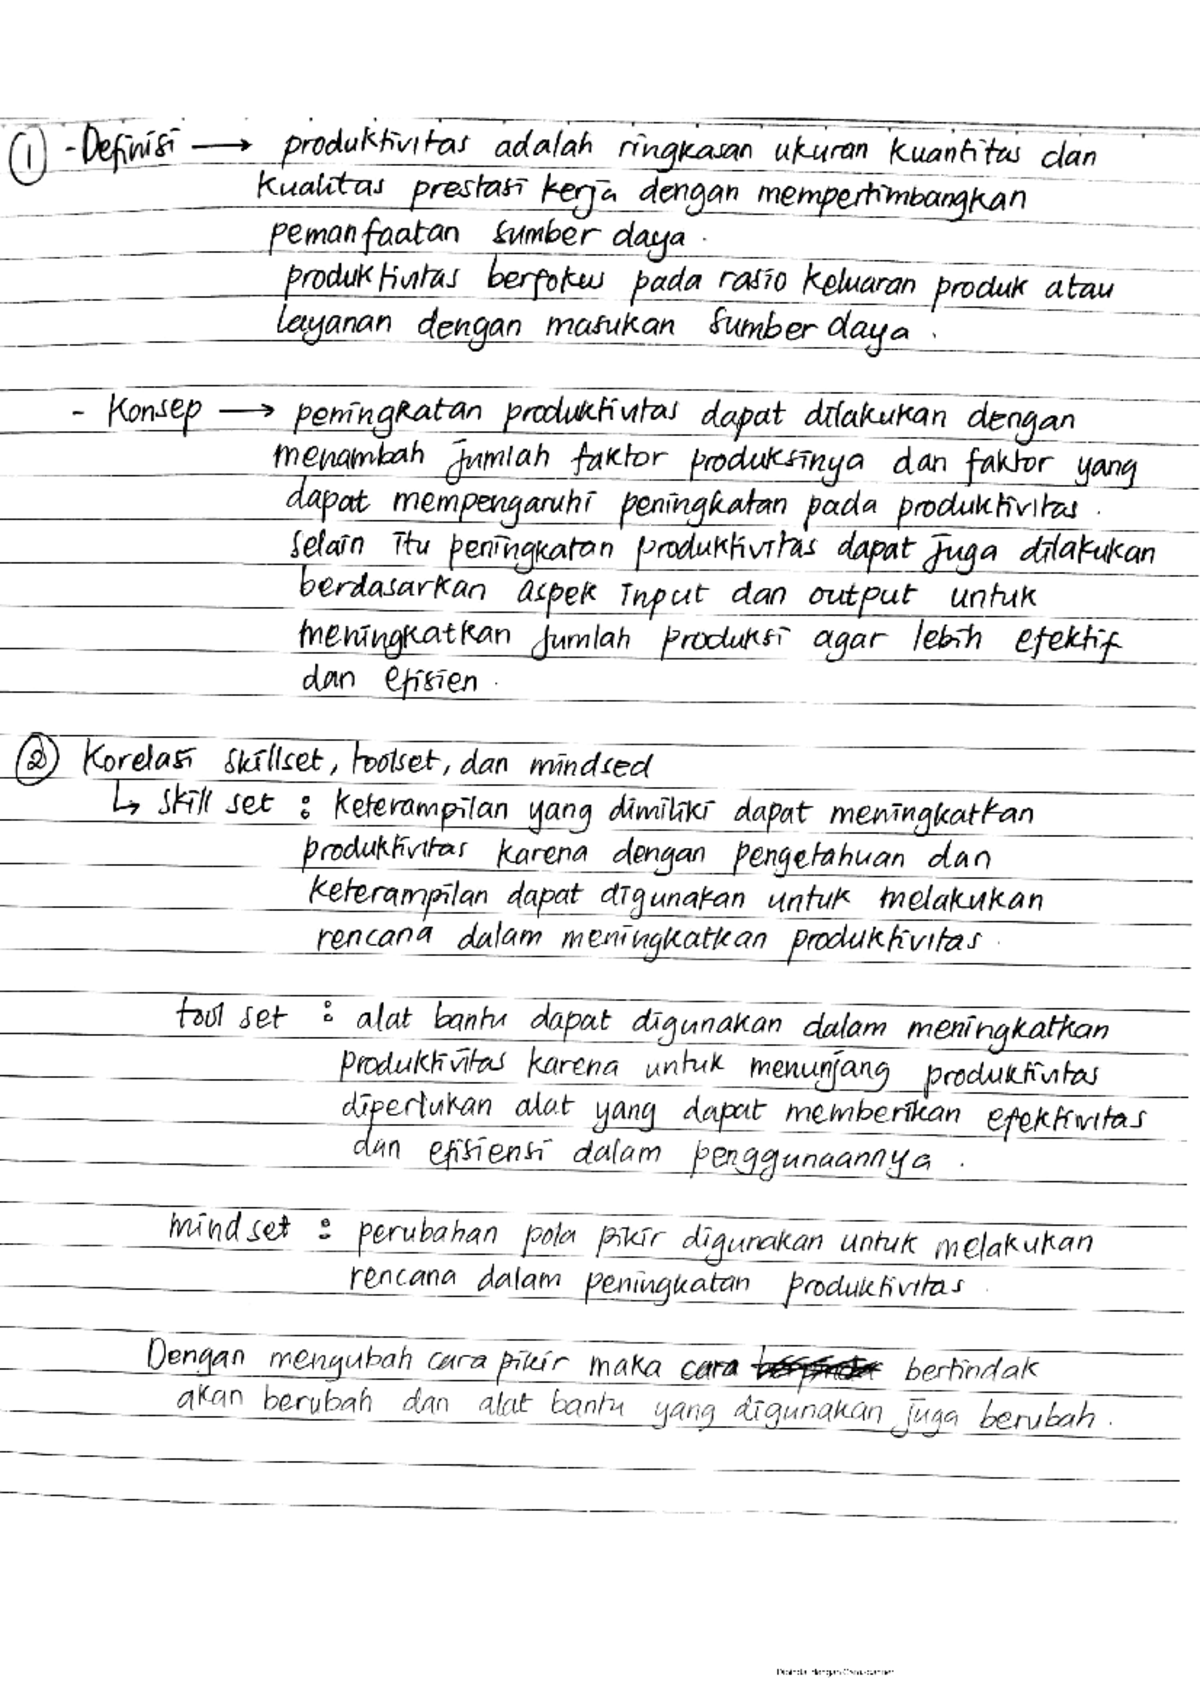 ① - Definisi → produktivitas adalah ringkasan ukuran kuantitas dan
kualitas prestasi kerja dengan mempertimbangkan
pemanfaatan sumber daya.
produktivitas berfokus pada rasio keluaran produk atau
layanan dengan masukan sumber daya.
- Konsep → peningkatan produktivitas dapat dilakukan dengan
menambah jumlah faktor produksinya dan faktor yang
dapat mempengaruhi peningkatan pada produktivitas.
selain itu peningkatan produktivitas dapat juga dilakukan
berdasarkan aspek input dan output untuk
meningkatkan jumlah produksi agar lebih efektif
dan efisien.
② Korelasi skillset, toolset, dan mindsed
↳ skill set : keterampilan yang dimiliki dapat meningkatkan
produktivitas karena dengan pengetahuan dan
keterampilan dapat digunakan untuk melakukan
rencana dalam meningkatkan produktivitas.
tool set : alat bantu dapat digunakan dalam meningkatkan
produktivitas karena untuk menunjang produktivitas
diperlukan alat yang dapat memberikan efektivitas
dan efisiensi dalam penggunaannya.
mindset : perubahan pola pikir digunakan untuk melakukan
rencana dalam peningkatan produktivitas.
Dengan mengubah cara pikir maka cara bertindak
akan berubah dan alat bantu yang digunakan juga berubah.